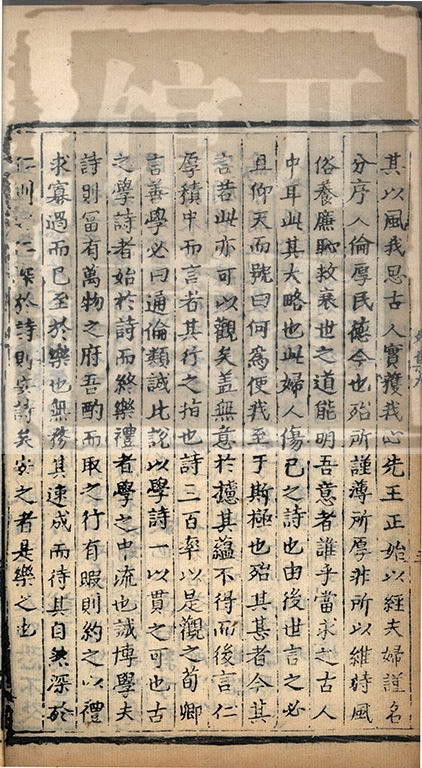 其以風我思古人實獲我心先王正始以經夫婦謹名
分序人倫厚民德今也殆所謹薄所厚非所以維時風
俗養廉恥救衰世之道能明吾意者誰乎當求之古人
中耳此其大略也此婦人傷己之詩也由後世言之必
且仰天而號曰何為便我至于斯極也殆其甚者今其
言若此亦可以觀矣盖無意於攄其蘊不得而後言仁
厚積中而言者其行之指也詩三百率以是觀之荀卿
言善學必曰通倫類誠比說以學詩一以貫之可也古
之學詩者始於詩而終樂禮者學之中流也誠博學夫
詩則冨有萬物之府吾酌而取之行有暇則約之以禮
求寡過而已至於樂也無務其速成而待其自然深於
仁則安仁深於詩則安詩矣安之者是樂之也